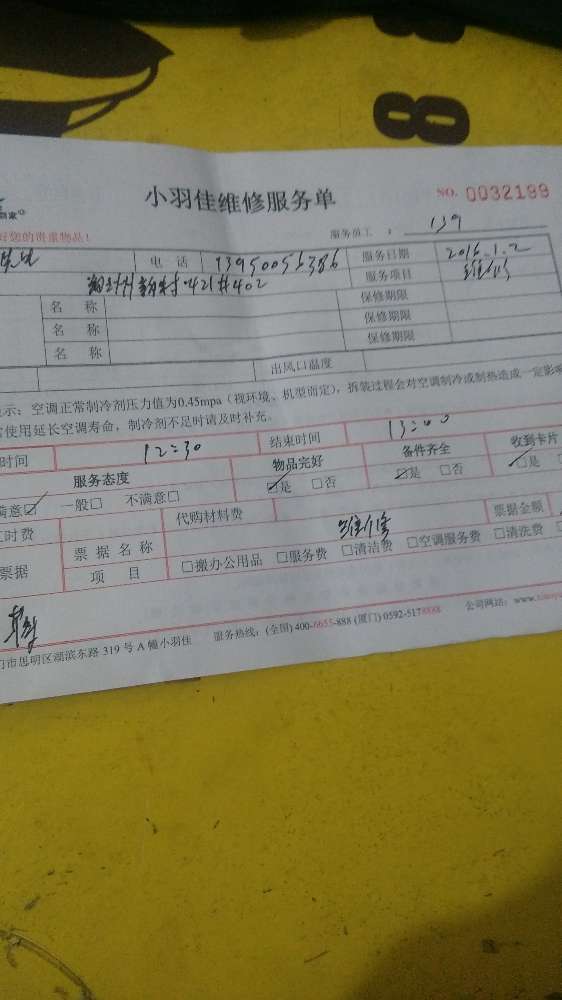 小羽佳维修服务单 NO. 0032199
好您的贵重物品! 服务员工 : 139
电 话 13950056386 服务日期 2016.1.2
服务项目 维修
名 称 保修期限
名 称 保修期限
名 称 保修期限
出风口温度
示:空调正常制冷剂压力值为0.45mpa(视环境、机型而定),拆装过程会对空调制冷或制热造成一定影响
使用延长空调寿命,制冷剂不足时请及时补充。
时间 12:30 结束时间 13:00
服务态度 物品完好 备件齐全 收到卡片
满意☑ 一般□ 不满意□ ☑是 □否 ☑是 □否 ☑是
工时费 代购材料费 维修 票据金额
票据 票据名称 □搬办公用品 □服务费 □清洁费 □空调服务费 □清洗费
项 目
门市思明区湖滨东路 319 号 A 幢小羽佳 服务热线:(全国) 400-6655-888 (厦门) 0592-5178888 公司网站:www.